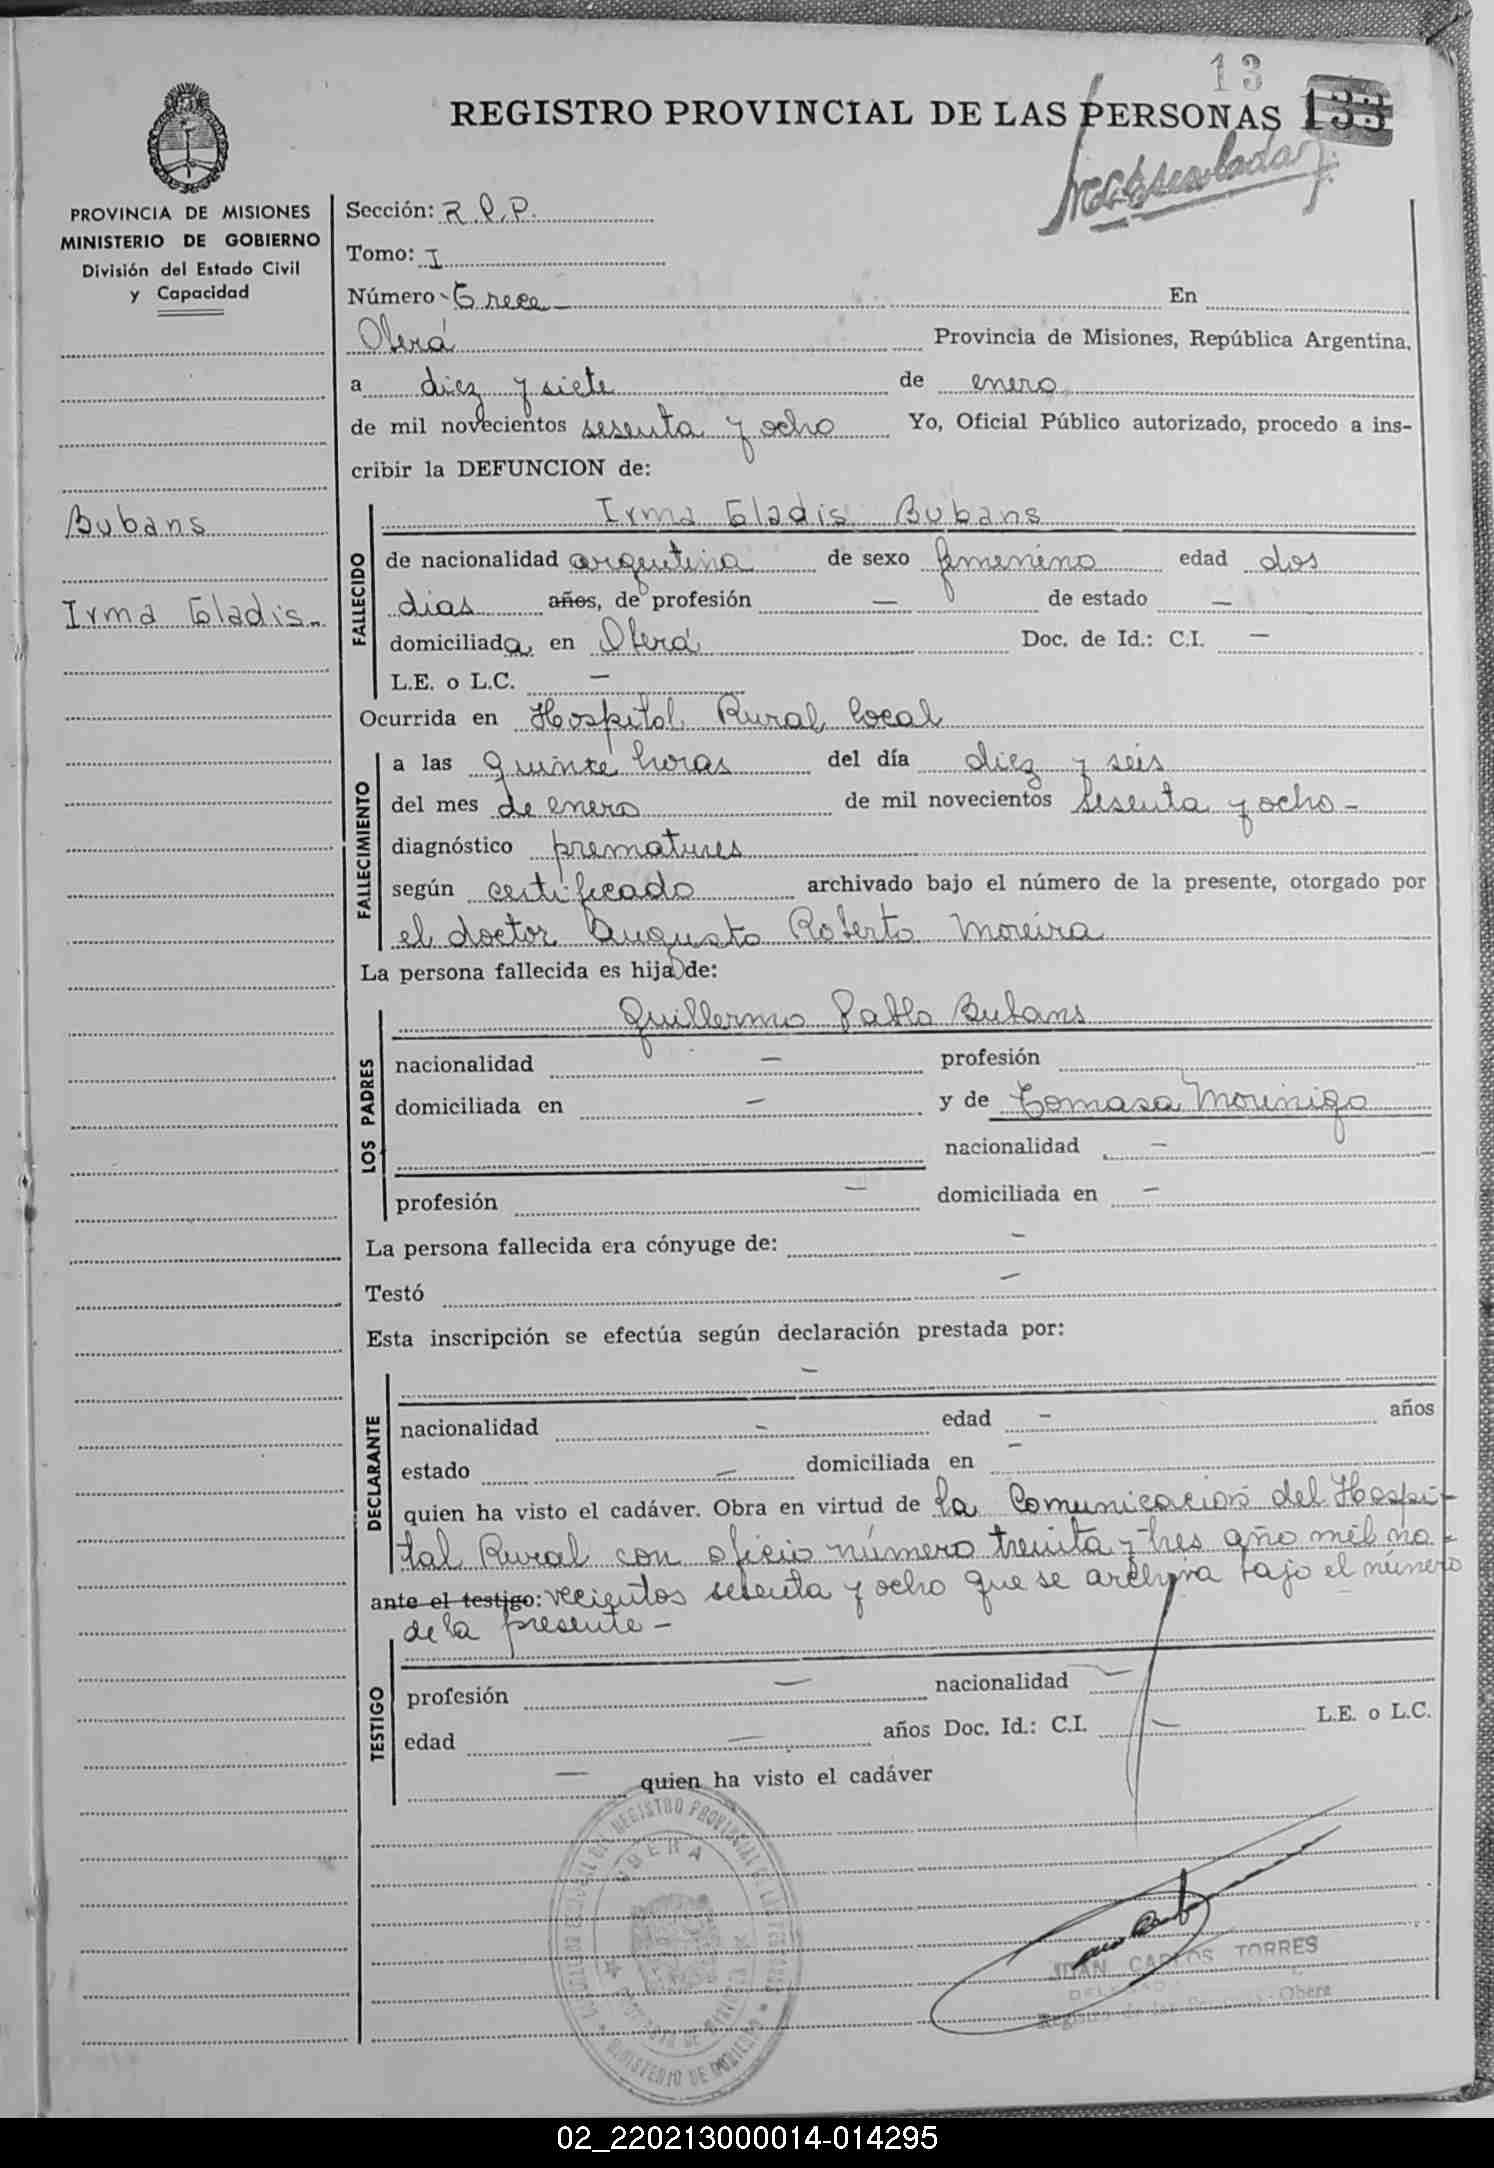 13
REGISTRO PROVINCIAL DE LAS PERSONAS 133
PROVINCIA DE MISIONES
MINISTERIO DE GOBIERNO
División del Estado Civil
y Capacidad
Bubans
Irma Gladis
Sección: R.P.P.
Tomo: I
Número Trece En
Oberá Provincia de Misiones, República Argentina,
a diez y siete de enero
de mil novecientos sesenta y ocho Yo, Oficial Público autorizado, procedo a ins-
cribir la DEFUNCION de:
FALLECIDO
Irma Gladis Bubans
de nacionalidad argentina de sexo femenino edad dos
dias años, de profesión — de estado —
domiciliada en Oberá Doc. de Id.: C.I. —
L.E. o L.C. —
Ocurrida en Hospital Rural local
FALLECIMIENTO
a las quince horas del día diez y seis
del mes de enero de mil novecientos sesenta y ocho -
diagnóstico prematures
según certificado archivado bajo el número de la presente, otorgado por
el doctor Augusto Roberto Moreira
La persona fallecida es hija de:
LOS PADRES
Guillermo Pablo Bubans
nacionalidad — profesión
domiciliada en — y de Tomasa Morinigo
nacionalidad —
profesión — domiciliada en —
La persona fallecida era cónyuge de: —
Testó —
Esta inscripción se efectúa según declaración prestada por:
DECLARANTE
—
nacionalidad — edad — años
estado — domiciliada en —
quien ha visto el cadáver. Obra en virtud de la Comunicación del Hospi-
tal Rural con oficio número treinta y tres año mil no-
ante el testigo: vecientos sesenta y ocho que se archiva bajo el número
de la presente -
TESTIGO
profesión — nacionalidad —
edad — años Doc. Id.: C.I. — L.E. o L.C.
— quien ha visto el cadáver
REGISTRO PROVINCIAL DE LAS PERSONAS
OBERA
MINISTERIO DE GOBIERNO
JUAN CARLOS TORRES
Registro de las Personas - Oberá
02_220213000014-014295